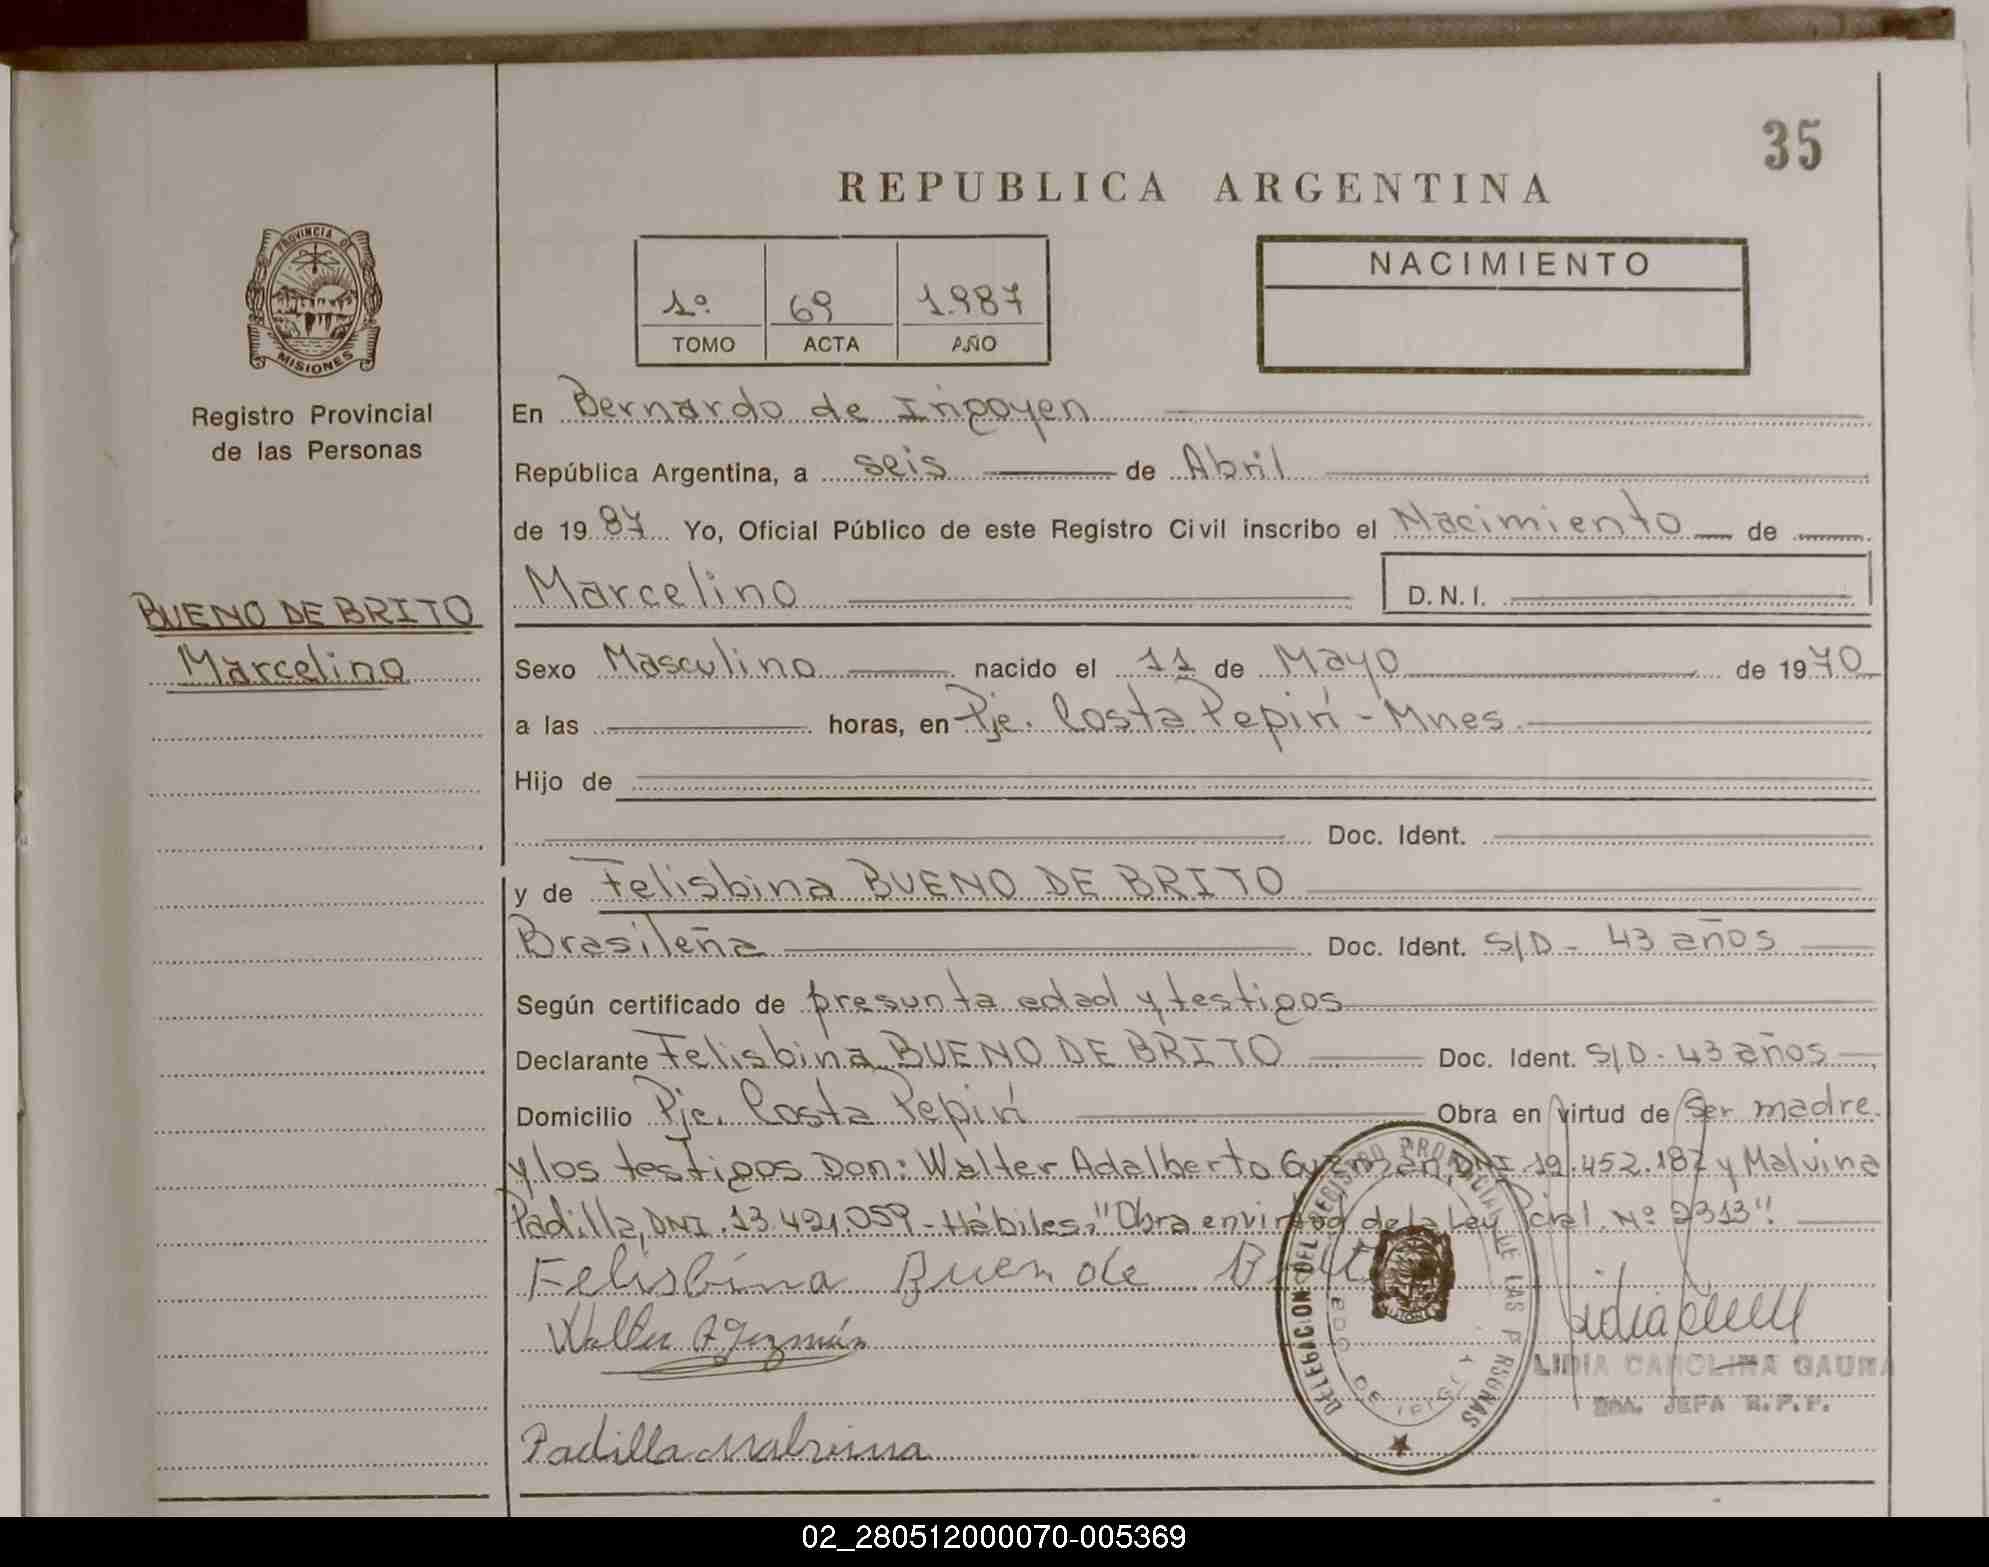 35
REPUBLICA ARGENTINA
PROVINCIA DE
MISIONES
Registro Provincial
de las Personas
1º 69 1.987
TOMO ACTA AÑO
NACIMIENTO
En Bernardo de Irigoyen
República Argentina, a seis de Abril
de 19 87 Yo, Oficial Público de este Registro Civil inscribo el Nacimiento de
Marcelino D.N.I.
BUENO DE BRITO
Marcelino
Sexo Masculino nacido el 11 de Mayo de 1970
a las horas, en Pje. Costa Pepirí - Mnes.
Hijo de
Doc. Ident.
y de Felisbina BUENO DE BRITO
Brasileña Doc. Ident. S/D - 43 años
Según certificado de presunta edad y testigos
Declarante Felisbina BUENO DE BRITO Doc. Ident. S/D - 43 años
Domicilio Pje. Costa Pepirí Obra en virtud de Ser madre.
y los testigos Don: Walter Adalberto Guzmán, DNI. 19.452.187 y Malvina
Padilla, DNI. 13.421.059 - Hábiles. "Obra en virtud de la Ley Pcial. Nº 2313".
Felisbina Buen de Brit
Walter A Guzmán
Padilla Malvina
DELEGACION DEL REGISTRO PROVINCIAL DE LAS PERSONAS
LIDIA CAROLINA GAUNA
JEFA R.P.P.
02_280512000070-005369